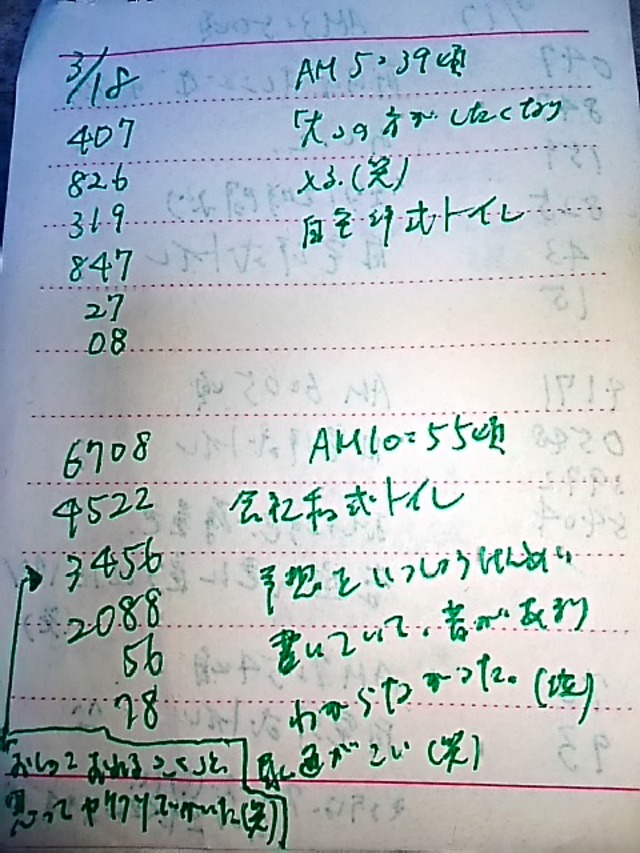 3/18
AM 5:39頃
407
「大」の方がしたくなり
826
(笑)
319
自宅洋式トイレ
847
27
08
6708
AM10:55頃
4522
会社和式トイレ
3456
予想をいっしょうけんめい
2088
書いていて、音があまり
56
わからなかった。(泣)
78
が (笑)
思ってヤケクソでかいた(笑)